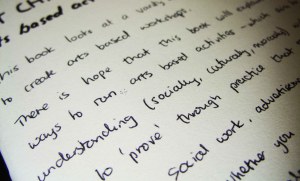 CH
s based ac
his book looks at a variety
to create arts based workshops.
There is hope that this book will
ways to run arts based activities - which
understanding (socially, culturally, morally)
to 'prove' through practice that
social work, advertising
whether you